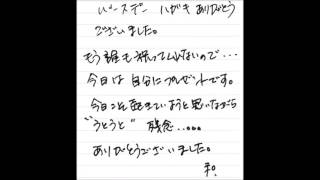 バースデー ハガキ ありがとう
ございました。
もう誰も祝ってくれないので・・・
今日は自分にプレゼントです。
今日こそ起きていようと思いながら
"うとうと" 残念・・・・・
ありがとうございました。